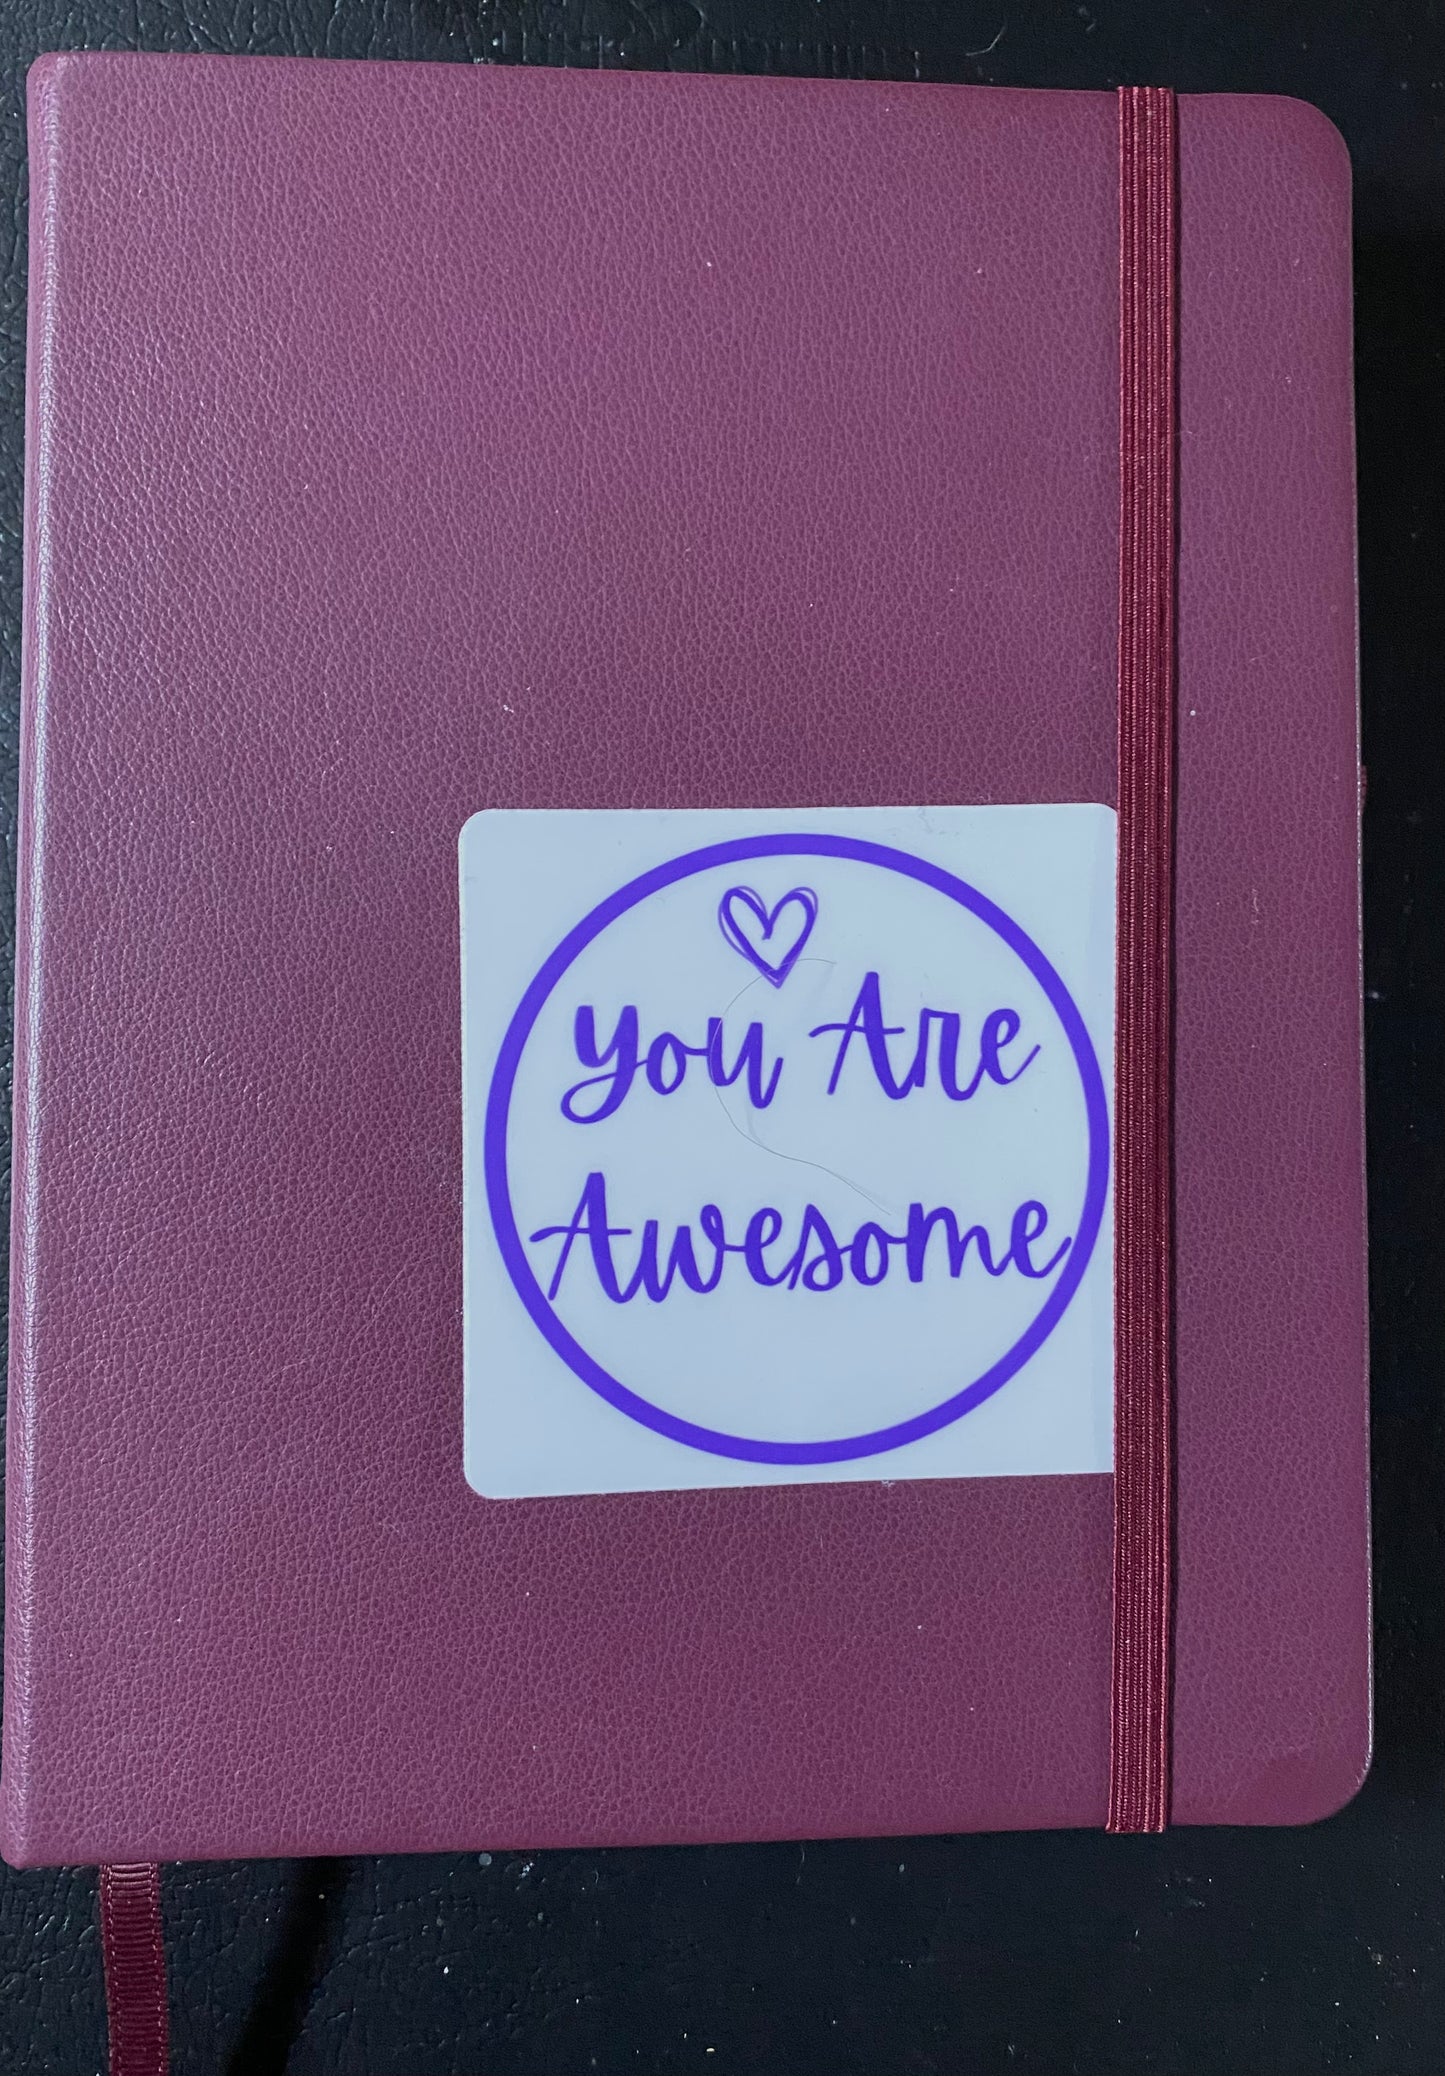 You Are
Awesome